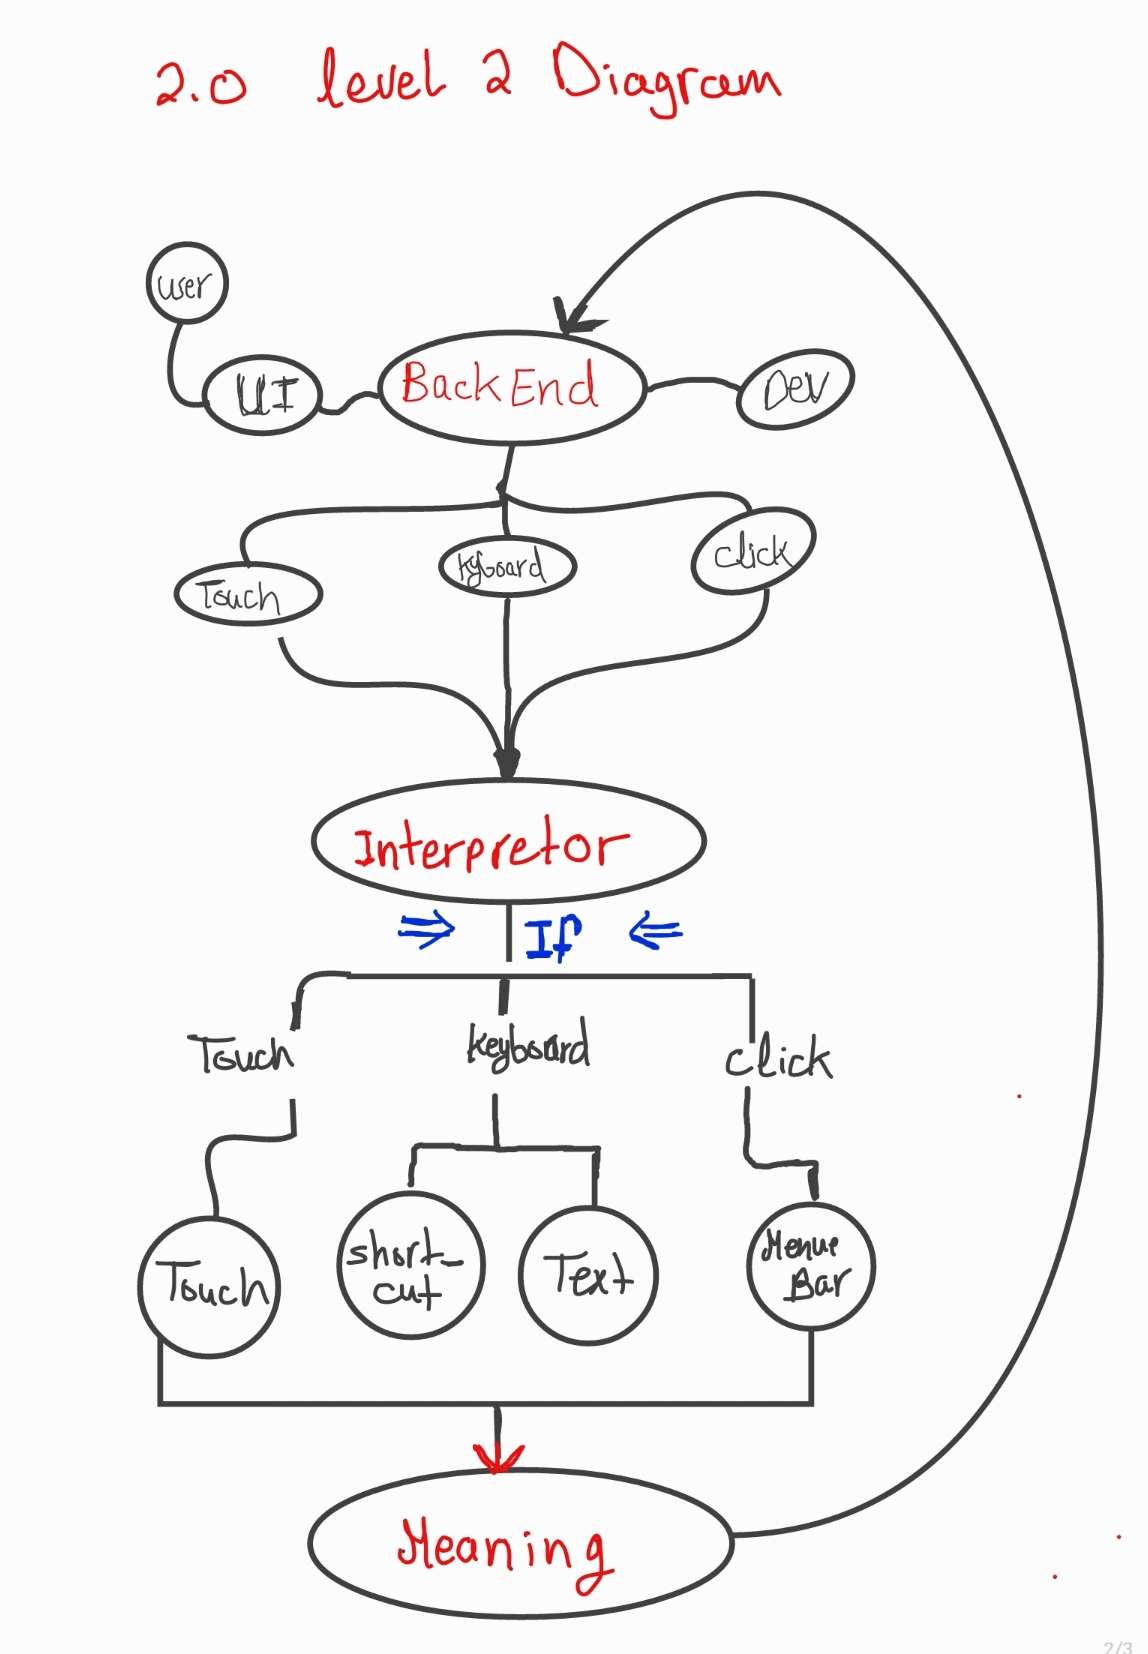 2.0 level 2 Diagram
user
UI
BackEnd
Dev
Touch
Kyboard
click
Interpretor
⇒ If ⇐
Touch
keyboard
click
Touch
short_
cut
Text
Menue
Bar
Meaning
2/3